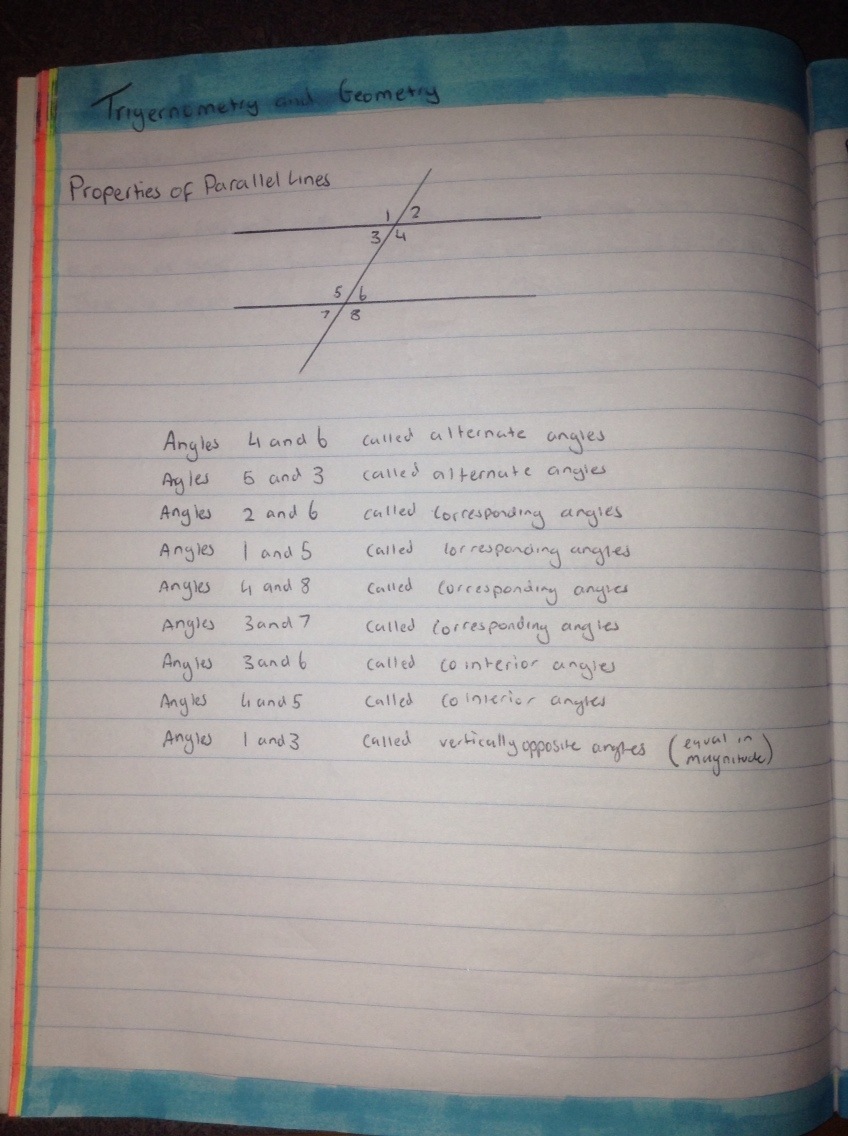 Trigernometry and Geometry
Properties of Parallel Lines
1 2
3 4
5 6
7 8
Angles 4 and 6 called alternate angles
Agles 5 and 3 called alternate angles
Angles 2 and 6 called corresponding angles
Angles 1 and 5 called corresponding angles
Angles 4 and 8 called corresponding angles
Angles 3 and 7 called corresponding angles
Angles 3 and 6 called cointerior angles
Angles 4 and 5 called cointerior angles
Angles 1 and 3 called vertically opposite angles (equal in
magnitude)